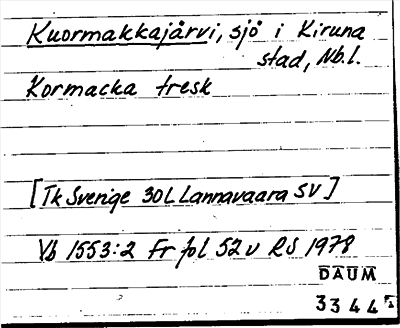 Kuormakkajärvi, sjö i Kiruna
stad, Nb.l.
Kormacka tresk
[Tk Sverige 30L Lannavaara SV]
Vb 1553:2 Fr fol 52v RS 1978
DAUM
3344